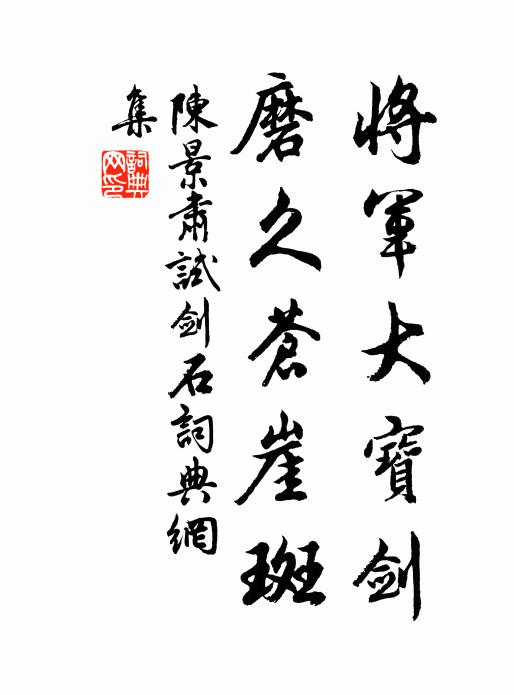 將軍大寶劍
磨久蒼崖斑
陳景肅試劍石詞典網
集
詞典
网印